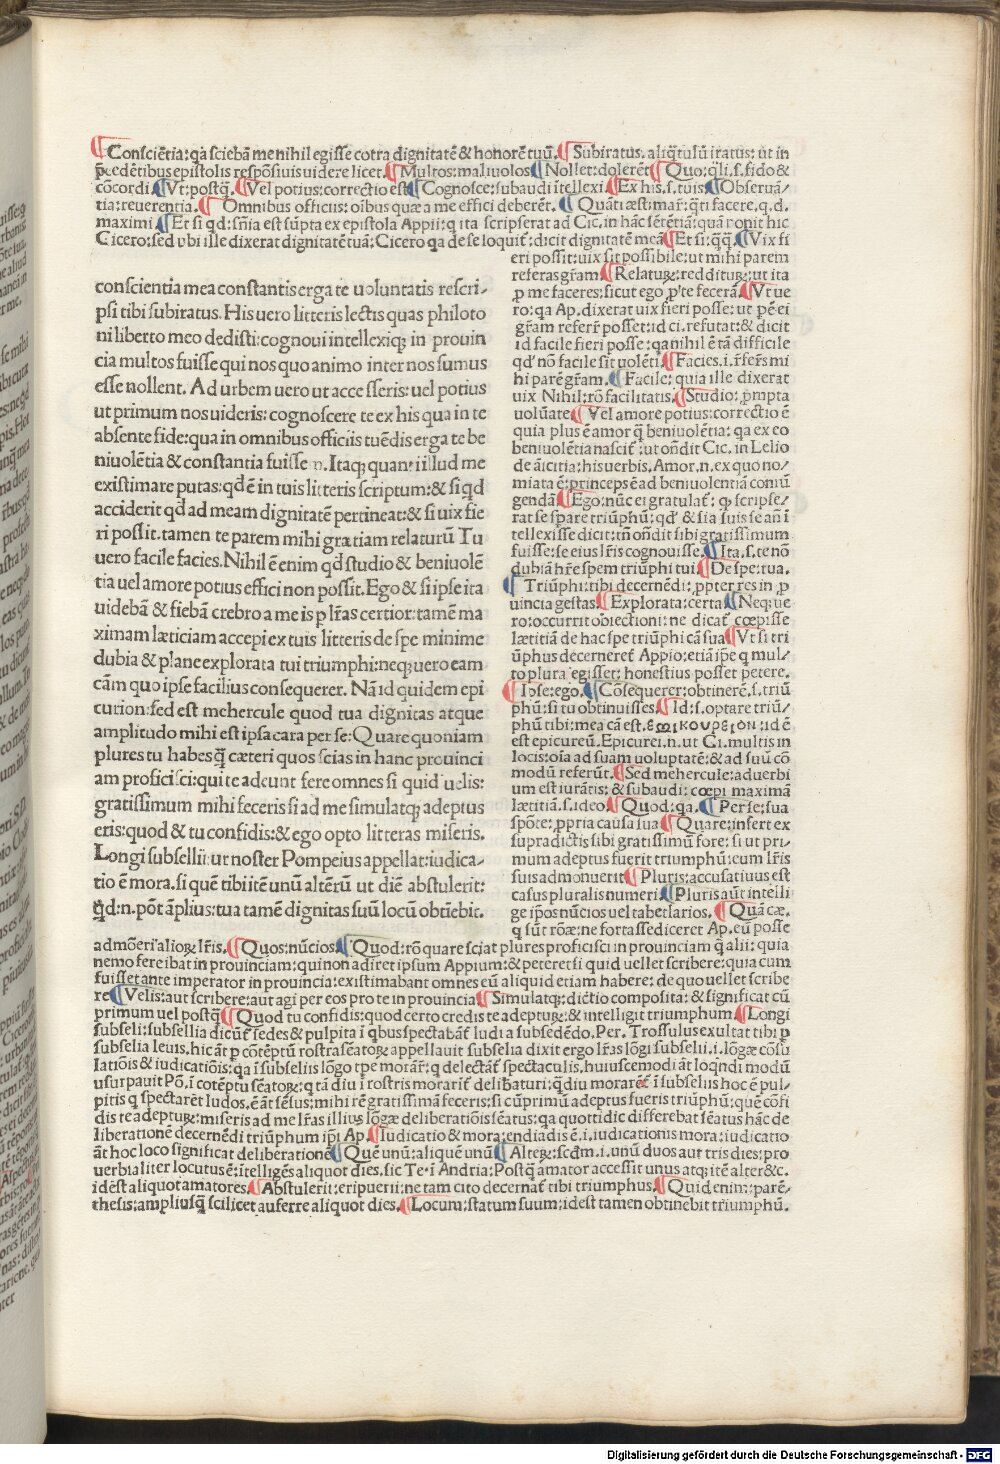 ⸿Consciẽtia: qa sciebã me nihil egisse cõtra dignitatẽ & honorẽ tuũ. ⸿Subiratus. aliq̃tulũ iratus: ut in
p̃cedẽtibus epistolis respõsiuis uidere licet. ⸿Multos: maliuolos ⸿Nollet: dolerẽt ⸿Quo: q̃li. s. fido &
cõcordi. ⸿Vt: postq̃. ⸿Vel potius: correctio est ⸿Cognosce: subaudi ĩtellexi ⸿Ex his. s. tuis ⸿Obseruã/
tia: reuerentia. ⸿Omnibus officiis: oĩbus quæ a me effici deberẽt. ⸿Quãti æst: mar̃: q̃ti facere. q. d.
maximi ⸿Et si qd: sñia est sũpta ex epistola Appii: q ita scripserat ad Cic. in hãc sẽtẽtiã: quã ponit hic
Cicero: sed ubi ille dixerat dignitatẽ tuã: Cicero qa de se loquit̃: dicit dignitatẽ meã ⸿Et si: q̃q̃. ⸿Vix fi
eri possit: uix sit possibile: ut mihi parem
referas gr̃am. ⸿Relaturꝝ: redditurꝝ: ut ita
ꝓ me faceres: sicut ego ꝓ te fecerã. ⸿Vt ue
ro: qa Ap. dixerat uix fieri posse: ut pẽ ei
gr̃am referr̃ posset: id ci. refutat: & dicit
id facile fieri posse: qa nihil ẽ tã difficile
qd' nõ facile sit uolẽti. ⸿Facies. i. r̃fer̃s mi
hi parẽ gr̃am. ⸿Facile: quia ille dixerat
uix Nihil: rõ facilitatis. ⸿Studio: ꝓmpta
uolũate ⸿Vel amore potius: correctio ẽ
quia plus ẽ amor q̃ beniuolẽtia: qa ex eo
beniuolẽtia nascit̃: ut oñdit Cic. in Lelio
de ãicitia: his uerbis. Amor. n. ex quo no/
miata ẽ: princeps ẽ ad beniuolentiã coniũ
gendã. ⸿Ego: nũc ei gratulat̃: ꝙ scripse/
rat se spare triũphũ: qd' & si a suis se an ĩ
tellexisse dicit: tñ oñdit sibi gratissimum
fuisse: se eius lr̃is cognouisse. ⸿Ita. s. te nõ
dubiã hr̃e spem triũphi tui ⸿De spe: tua.
⸿Triũphi: tibi decernẽdi: ꝓpter res in ꝓ
uincia gestas. ⸿Explorata: certa ⸿Neq; ue
ro: occurrit obiectioni: ne dicat̃ cœpisse
lætitiã de hac spe triũphi cã sua ⸿Vt si tri
ũphus decerneret̃ Appio: etiã ip̃e q mul/
to plura egisset: honestius posset petere.
⸿Ipse: ego. ⸿Cõsequerer: obtinerẽ. s. triũ
phũ: si tu obtinuisses ⸿Id: s. optare triũ/
phũ tibi: mea cã est. επικουρειον: id ẽ
est epicureũ. Epicurei. n. ut Ci. multis in
locis: oĩa ad suam uoluptatẽ: & ad suũ cõ
modũ referũt. ⸿Sed mehercule: aduerbi
um est iurãtis: & subaudi: cœpi maximã
lætitiã. s. ideo. ⸿Quod: qa. ⸿Per se: sua
spõte: ꝓpria causa sua ⸿Quare: infert ex
supradictis sibi gratissimũ fore: si ut pri/
mum adeptus fuerit triumphũ: eum lr̃is
suis admonuerit ⸿Pluris: accusatiuus est
casus pluralis numeri. ⸿Pluris aũt intelli
ge ip̃os nũcios uel tabellarios. ⸿Quã cæ.
q sũt rõæ: ne fortasse diceret Ap. eũ posse
conscientia mea constantis erga te uoluntatis rescri/
psi tibi subiratus. His uero litteris lectis quas philoto
ni liberto meo dedisti: cognoui intellexiq; in prouin
cia multos fuisse qui nos quo animo inter nos sumus
esse nollent. Ad urbem uero ut accesseris: uel potius
ut primum nos uideris: cognoscere te ex his qua in te
absente fide: qua in omnibus officiis tuẽdis erga te be
niuolẽtia & constantia fuisse n. Itaq; quanti illud me
existimare putas: qd̃ ẽ in tuis litteris scriptum: & si qd
acciderit qd̃ ad meam dignitatẽ pertineat: & si uix fie
ri possit. tamen te parem mihi gratiam relaturũ Tu
uero facile facies. Nihil ẽ enim qd̃ studio & beniuolẽ
tia uel amore potius effici non possit. Ego & si ipse ita
uidebã & fiebã crebro a meis p lr̃as certior: tamẽ ma
ximam læticiam accepi ex tuis litteris de spe minime
dubia & plane explorata tui triumphi: neq; uero eam
cãm quo ipse facilius consequerer. Nã id quidem epi
curion: sed est mehercule quod tua dignitas atque
amplitudo mihi est ipsa cara per se: Quare quoniam
plures tu habes q̃ cæteri quos scias in hanc prouinci
am proficisci: qui te adeunt fere omnes si quid uelis:
gratissimum mihi feceris si ad me simulatq; adeptus
eris: quod & tu confidis: & ego opto litteras miseris.
Longi subsellii: ut noster Pompeius appellat: iudica/
tio ẽ mora. si quẽ tibi itẽ unũ altẽrũ ut diẽ abstulerit:
q̃d: n. põt ãplius: tua tamẽ dignitas suũ locũ obtĩebit.
admõeri alioꝝ lr̃is. ⸿Quos: nũcios. ⸿Quod: rõ quare sciat plures proficisci in prouinciam q̃ alii: quia
nemo fere ibat in prouinciam: qui non adiret ipsum Appium: & peteret si quid uellet scribere: quia cum
fuisset ante imperator in prouincia: existimabant omnes eũ aliquid etiam habere: de quo uellet scribe
re ⸿Velis: aut scribere: aut agi per eos pro te in prouincia ⸿Simulatq;: dictio composita: & significat cũ
primum uel postq̃ ⸿Quod tu confidis: quod certo credis te adepturꝝ: & intelligit triumphum. ⸿Longi
subseli: subsellia dicũt̃ sedes & pulpita ĩ qbus spectabãt̃ ludi a subsedẽdo. Per. Trossulus exultat tibi ꝑ
subselia leuis. hic ãt ꝑ cõtẽptũ rostra sẽatoꝝ appellauit subselia dixit ergo lr̃as lõgi subselii. i. lõgæ cõsu
latiõis & iudicatiõis: qa ĩ subseliis lõgo tp̃e morãr̃: q delectãt̃ spectaculis. huiuscemodi ãt loqndi modũ
usurpauit Põ. ĩ cotẽptu sẽatoꝝ: q tã diu ĩ rostris morarit̃ delib̃aturi: q̃diu morarẽt̃ ĩ subseliis hoc ẽ pul/
pitis q spectarẽt ludos. ẽ ãt sẽsus: mihi rẽ gratissimã feceris: si cũ primũ adeptus fueris triũphũ: quẽ cõfi
dis te adepturꝝ: miseris ad me lr̃as illius lõgæ deliberatiõis sẽatus: qa quottidie differebat sẽatus hãc de
liberationẽ decernẽdi triũphum ip̃i Ap. ⸿Iudicatio & mora: endiadis ẽ. i. iudicationis mora: iudicatio
ãt hoc loco significat deliberationẽ ⸿Quẽ unũ: aliquẽ unũ ⸿Alterꝝ: scd̃m. i. unũ duos aut tris dies: pro
uerbialiter locutus ẽ: ĩtelligẽs aliquot dies. sic Te. i Andria: Postq̃ amator accessit unus atq; itẽ alter &c.
id ẽst aliquot amatores. ⸿Abstulerit: eripuerit: ne tam cito decernat̃ tibi triumphus. ⸿Quid enim: parẽ/
thesis: ampliusq̃ scilicet auferre aliquot dies. ⸿Locum: statum suum: id est tamen obtinebit triumphũ.
Digitalisierung gefördert durch die Deutsche Forschungsgemeinschaft - DFG